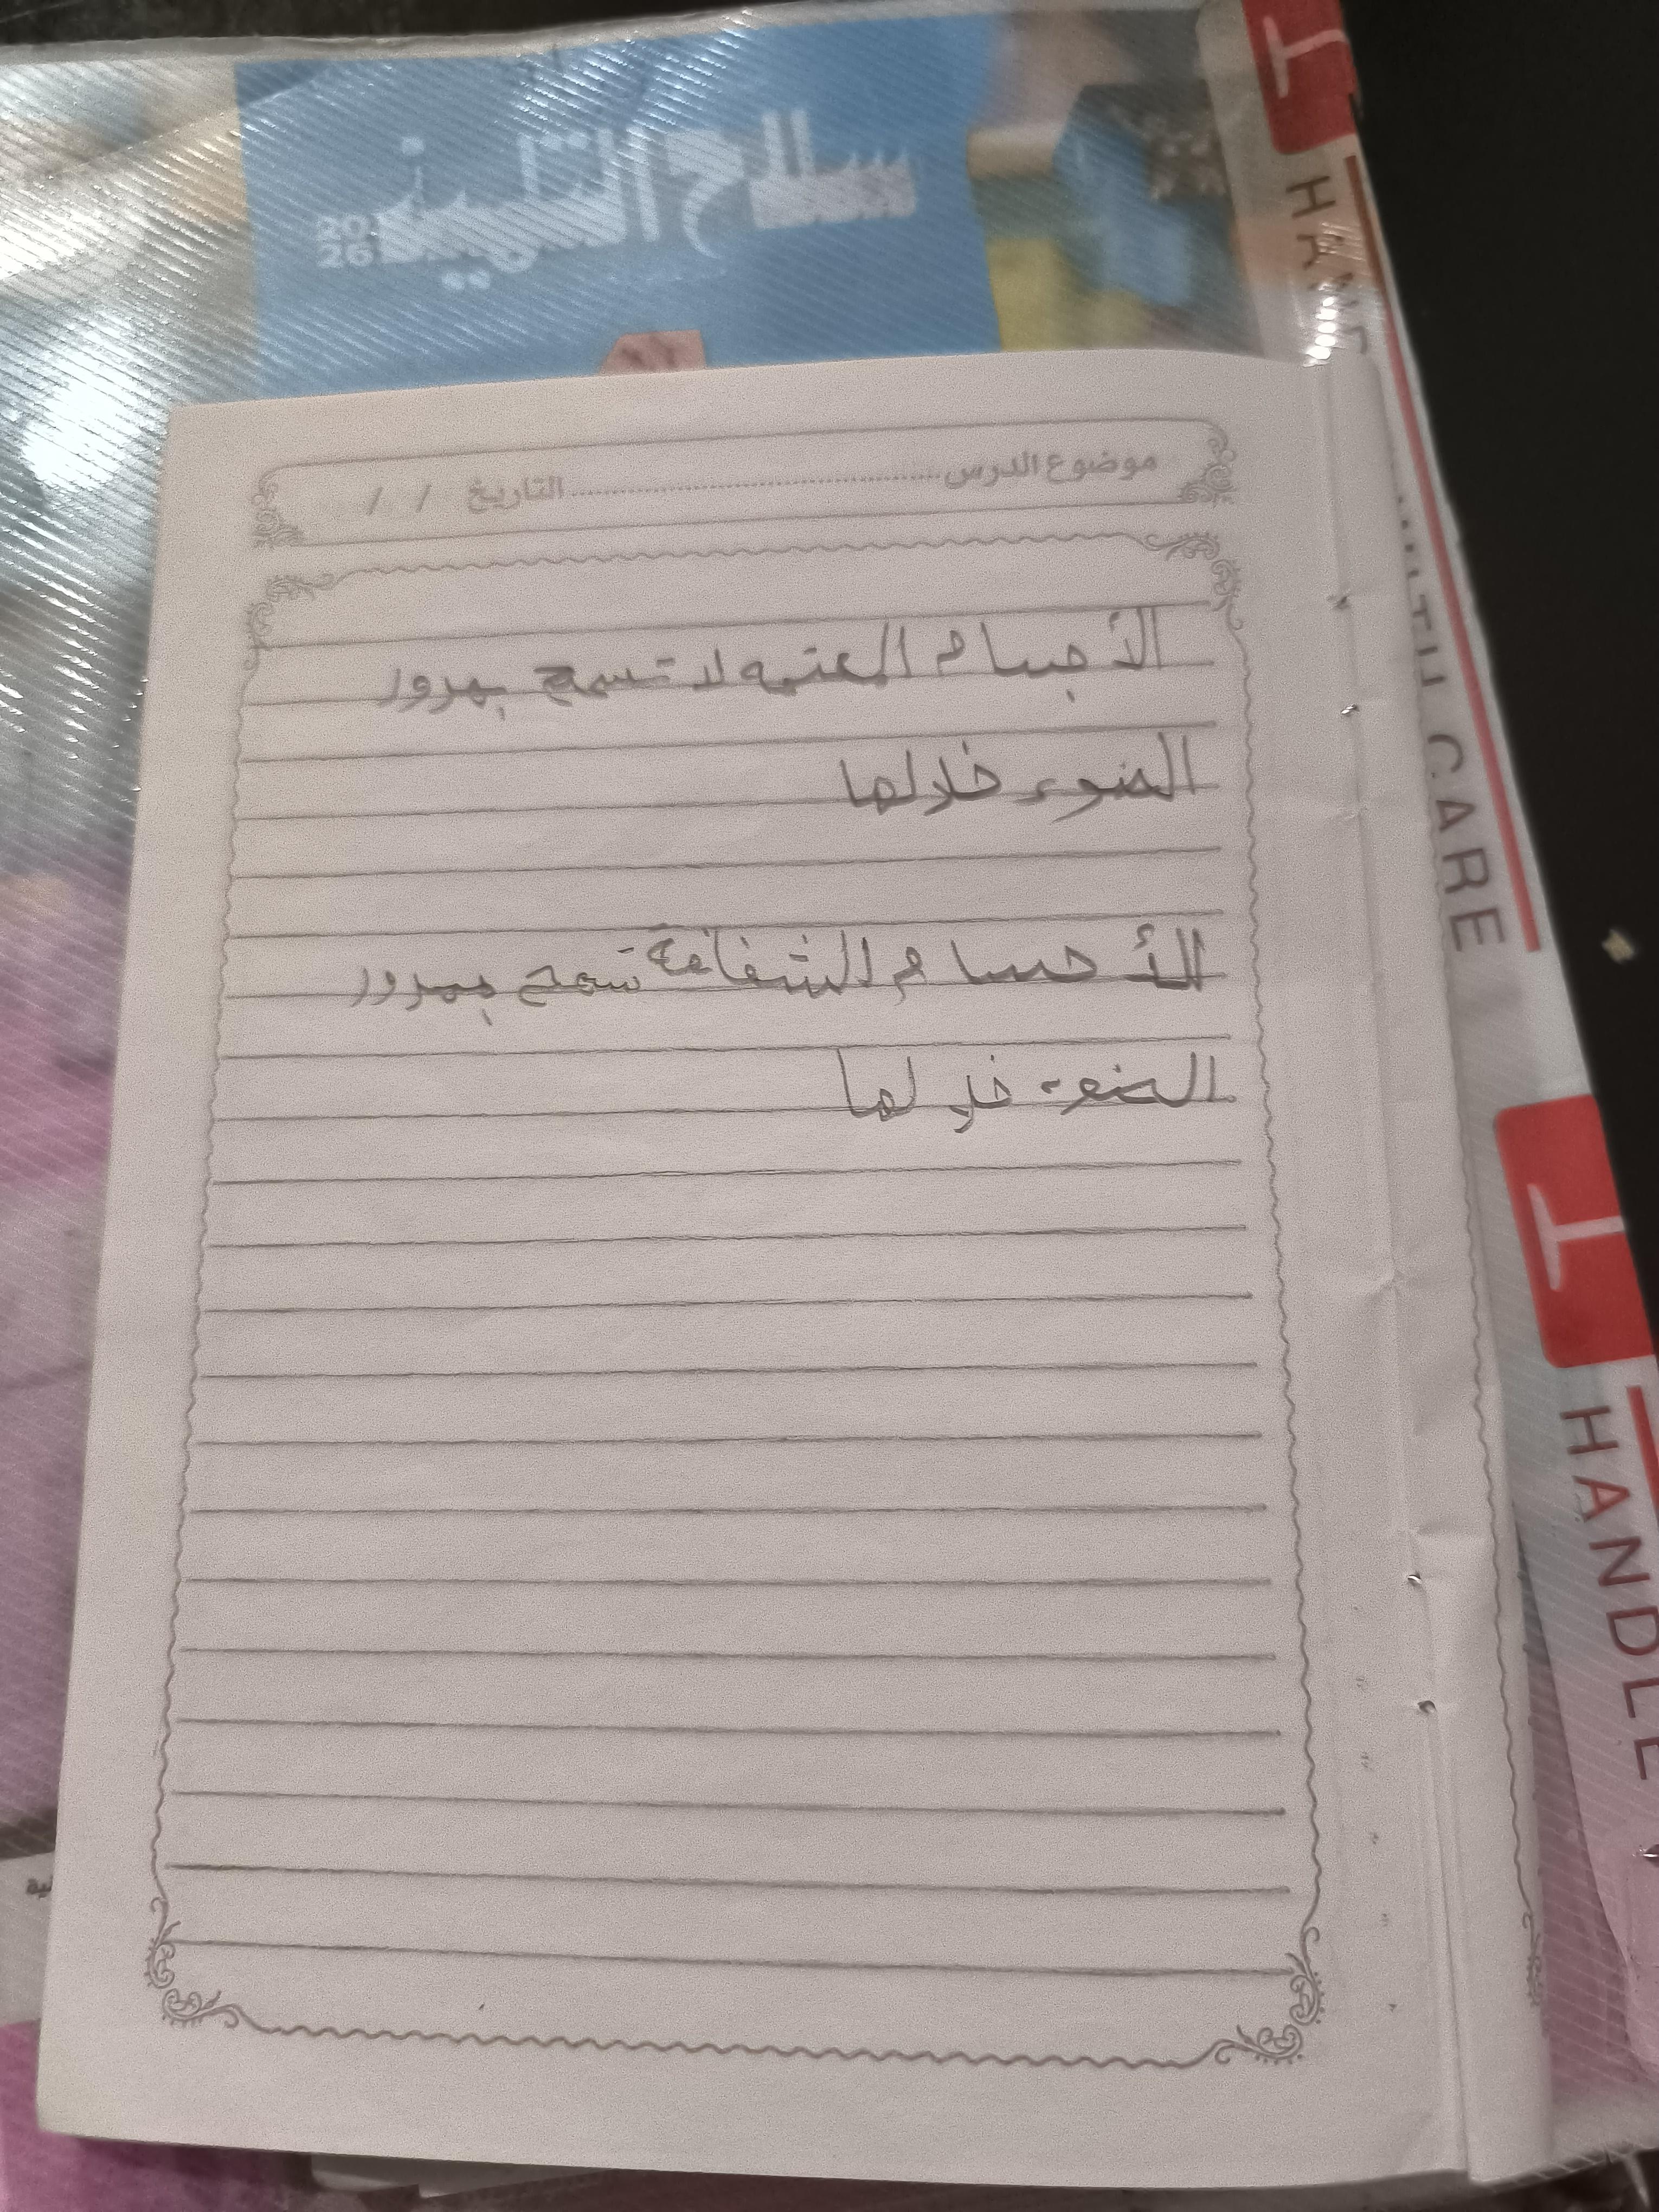 سلاح التلميذ
2026
HANDLE WITH CARE
موضوع الدرس ........................ التاريخ / /
الأجسام المعتمه لا تسمح بمرور
الضوء خلالها
الأجسام الشفافة تسمح بمرور
الضوء خلالها
HANDLE